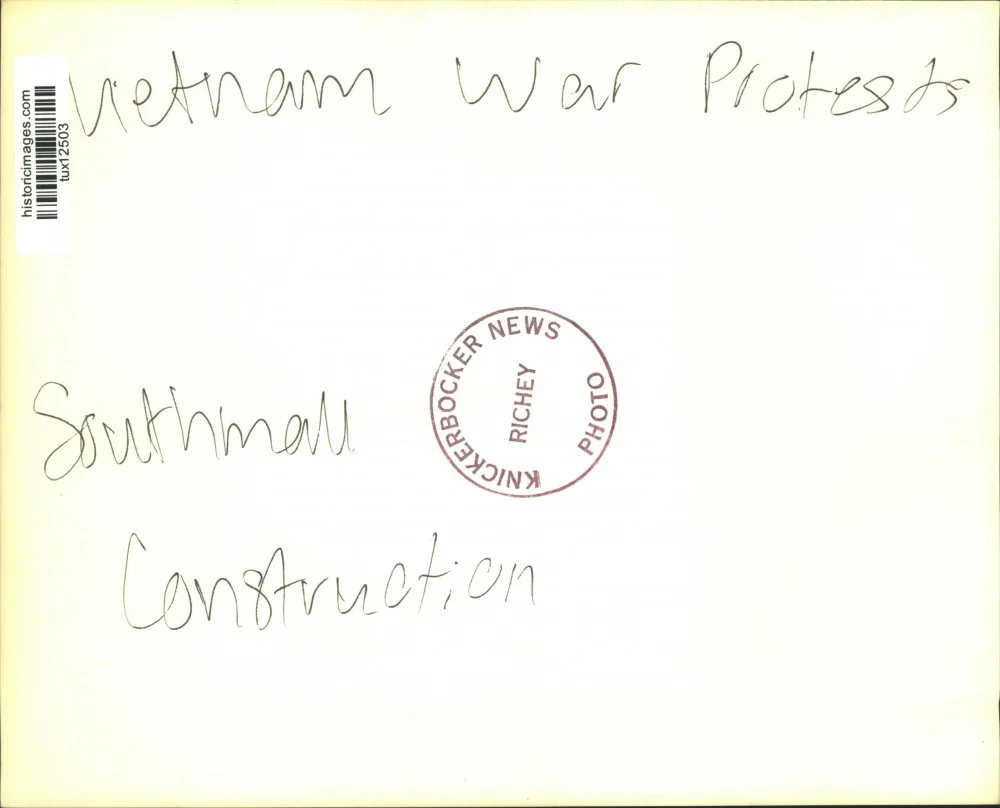 Vietnam War Protests
historicimages.com
tux12503
KNICKERBOCKER NEWS
RICHEY
PHOTO
Southmall
Construction